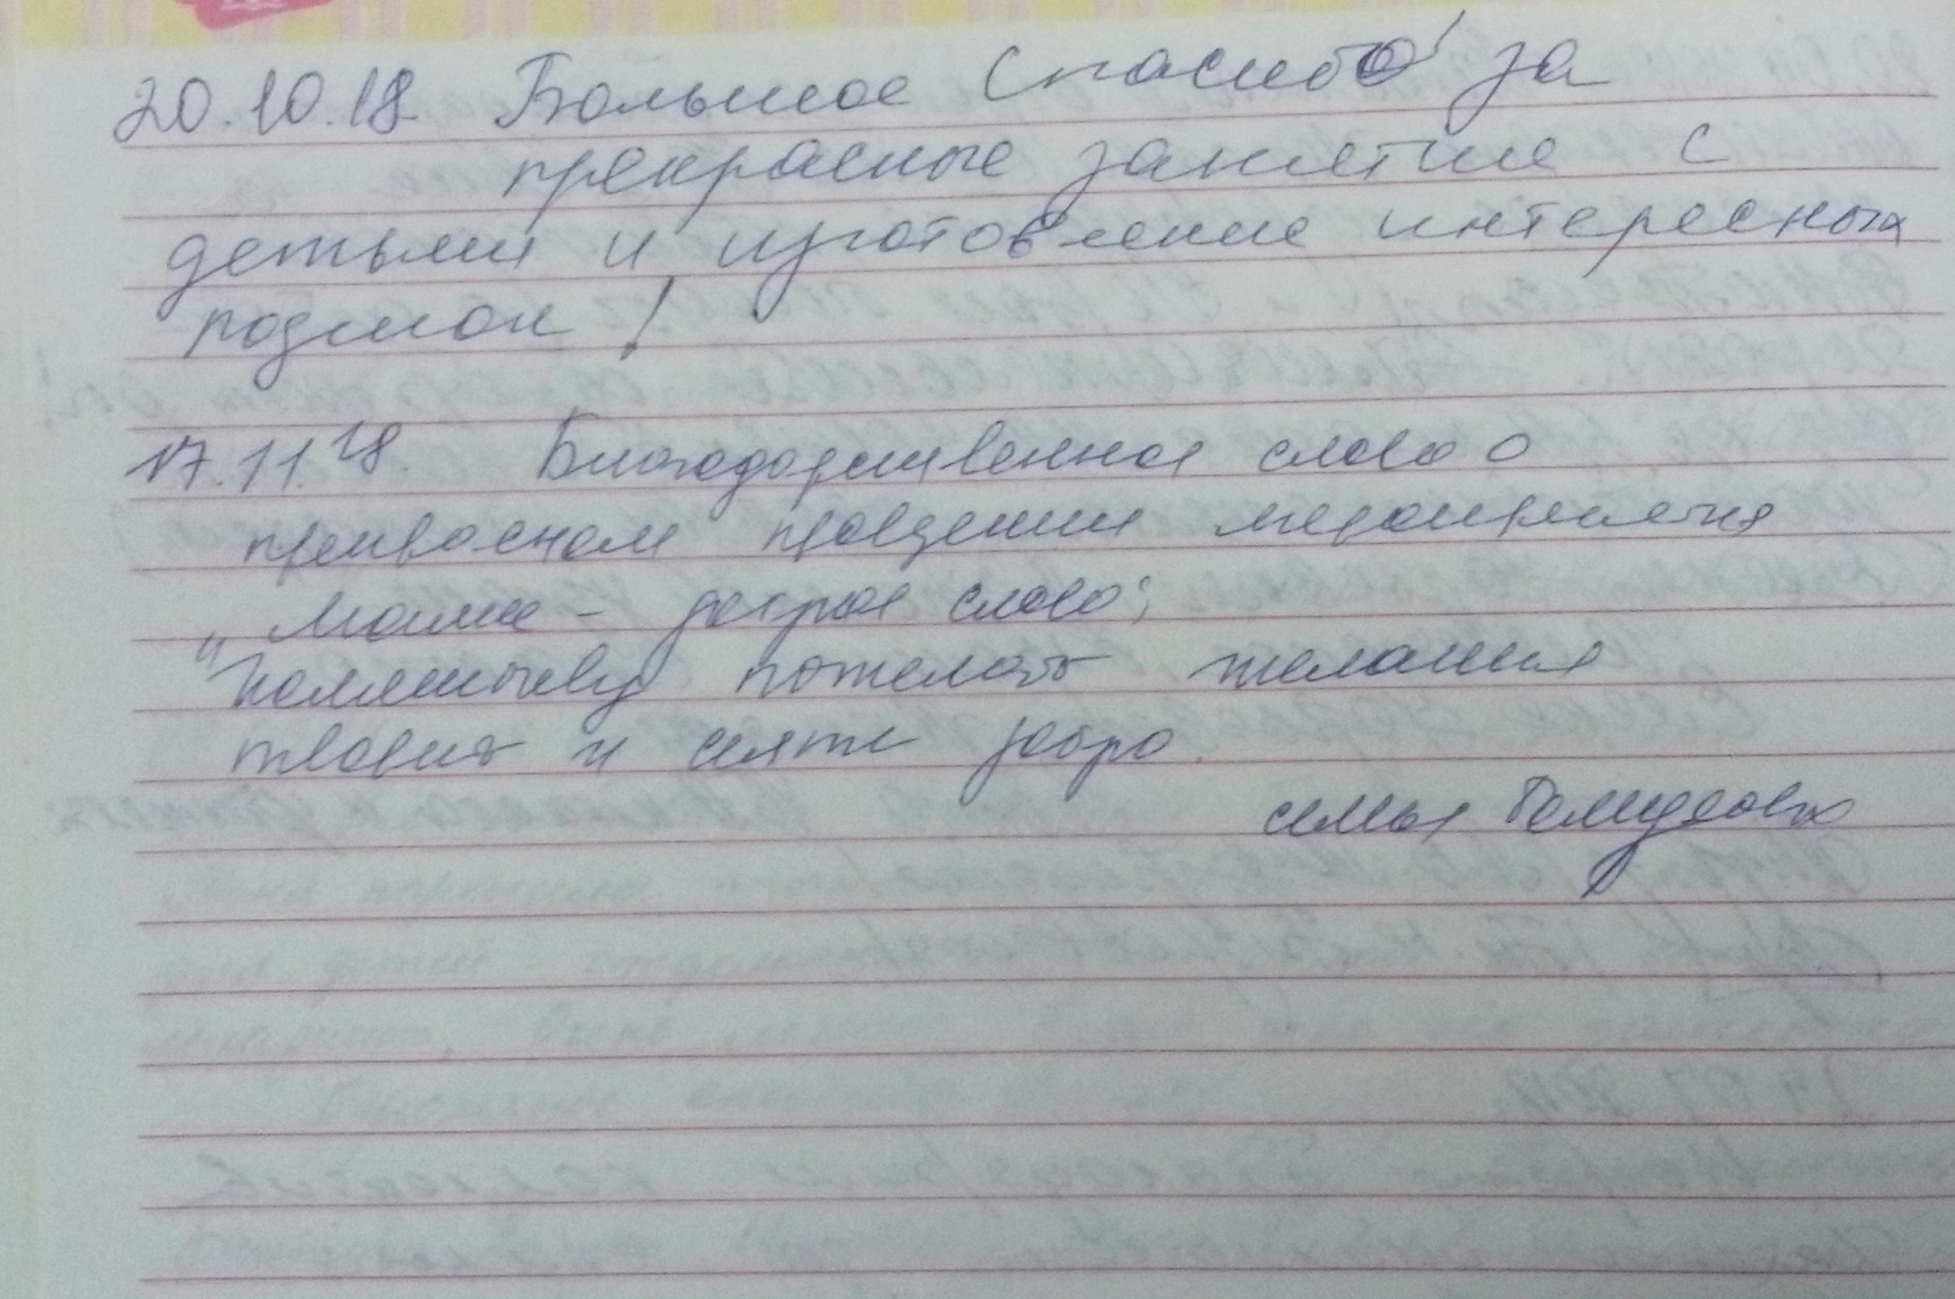 20.10.18. Большое Спасибо за
прекрасные занятие с
детьми и изготовление интересных
!
17.11.18. Благодарственное слово о
прекрасном проведении мероприятия
"Мама - доброе слово";
Коллективу пожелать желания
творить и сеять добро.
семья